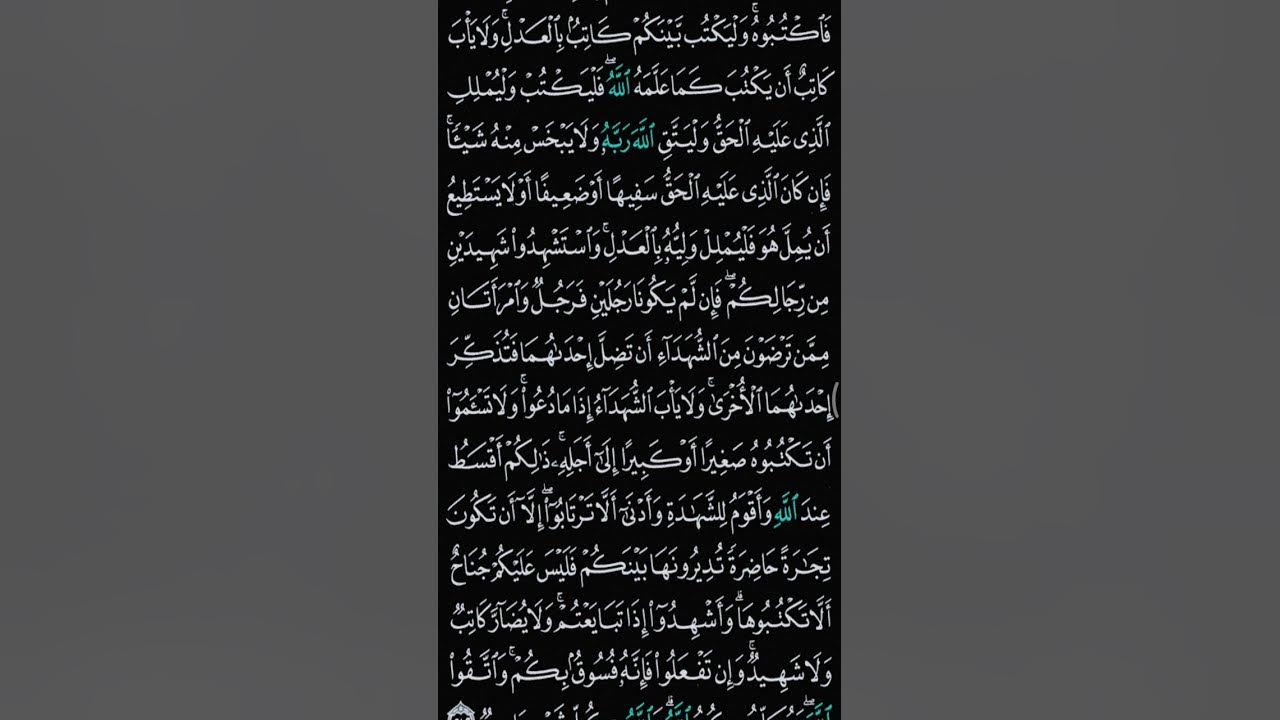 فَٱكۡتُبُوهُۚ وَلۡيَكۡتُب بَّيۡنَكُمۡ كَاتِبُۢ بِٱلۡعَدۡلِۚ وَلَا يَأۡبَ
كَاتِبٌ أَن يَكۡتُبَ كَمَا عَلَّمَهُ ٱللَّهُۚ فَلۡيَكۡتُبۡ وَلۡيُمۡلِلِ
ٱلَّذِي عَلَيۡهِ ٱلۡحَقُّ وَلۡيَتَّقِ ٱللَّهَ رَبَّهُۥ وَلَا يَبۡخَسۡ مِنۡهُ شَيۡـٔٗاۚ
فَإِن كَانَ ٱلَّذِي عَلَيۡهِ ٱلۡحَقُّ سَفِيهًا أَوۡ ضَعِيفًا أَوۡ لَا يَسۡتَطِيعُ
أَن يُمِلَّ هُوَ فَلۡيُمۡلِلۡ وَلِيُّهُۥ بِٱلۡعَدۡلِۚ وَٱسۡتَشۡهِدُواْ شَهِيدَيۡنِ
مِن رِّجَالِكُمۡۖ فَإِن لَّمۡ يَكُونَا رَجُلَيۡنِ فَرَجُلٞ وَٱمۡرَأَتَانِ
مِمَّن تَرۡضَوۡنَ مِنَ ٱلشُّهَدَآءِ أَن تَضِلَّ إِحۡدَىٰهُمَا فَتُذَكِّرَ
إِحۡدَىٰهُمَا ٱلۡأُخۡرَىٰۚ وَلَا يَأۡبَ ٱلشُّهَدَآءُ إِذَا مَا دُعُواْۚ وَلَا تَسۡـَٔمُوٓاْ
أَن تَكۡتُبُوهُ صَغِيرًا أَوۡ كَبِيرًا إِلَىٰٓ أَجَلِهِۦۚ ذَٰلِكُمۡ أَقۡسَطُ
عِندَ ٱللَّهِ وَأَقۡوَمُ لِلشَّهَٰدَةِ وَأَدۡنَىٰٓ أَلَّا تَرۡتَابُوٓاْ إِلَّآ أَن تَكُونَ
تِجَٰرَةً حَاضِرَةٗ تُدِيرُونَهَا بَيۡنَكُمۡ فَلَيۡسَ عَلَيۡكُمۡ جُنَاحٌ
أَلَّا تَكۡتُبُوهَاۗ وَأَشۡهِدُوٓاْ إِذَا تَبَايَعۡتُمۡۚ وَلَا يُضَآرَّ كَاتِبٞ
وَلَا شَهِيدٞۚ وَإِن تَفۡعَلُواْ فَإِنَّهُۥ فُسُوقُۢ بِكُمۡۗ وَٱتَّقُواْ